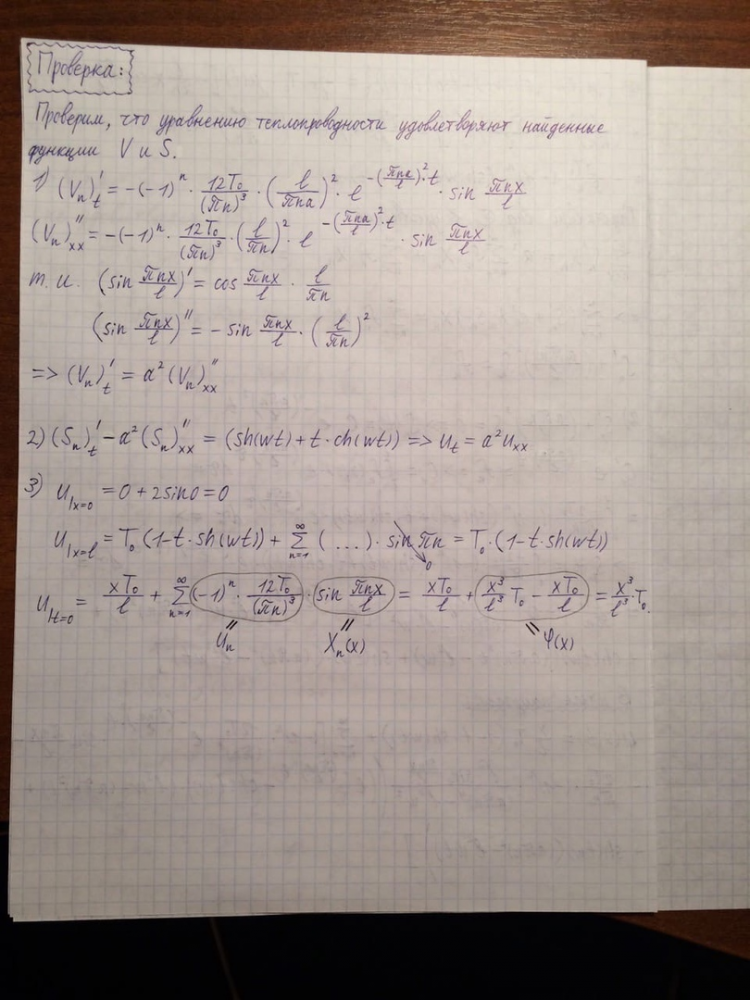 Проверка:
Проверим, что уравнению теплопроводности удовлетворяют найденные
функции V и S.
1) (Vₙ)'ₜ = -(-1)ⁿ · 12T₀/(πn)³ · (l/(πna))² · e^(-(πna/l)²·t) · sin πnx/l
(Vₙ)''ₓₓ = -(-1)ⁿ · 12T₀/(πn)³ · (l/(πn))² · e^(-(πna/l)²·t) · sin πnx/l
т.и. (sin πnx/l)' = cos πnx/l · l/(πn)
(sin πnx/l)'' = -sin πnx/l · (l/(πn))²
=> (Vₙ)'ₜ = a² (Vₙ)''ₓₓ
2) (Sₙ)'ₜ - a² (Sₙ)''ₓₓ = (sh(wt) + t · ch(wt)) => uₜ = a² uₓₓ
3) u|ₓ₌₀ = 0 + 2sin0 = 0
u|ₓ₌ₗ = T₀ (1-t · sh(wt)) + ∑ₙ₌₁^∞ (...) · sin πn → 0 = T₀ · (1-t · sh(wt))
u|ₜ₌₀ = xT₀/l + ∑ₙ₌₁^∞ (-1)ⁿ · 12T₀/(πn)³ · sin πnx/l = xT₀/l + x³/l³ T₀ - xT₀/l = x³/l³ · T₀.
uₙ Xₙ(x) φ(x)